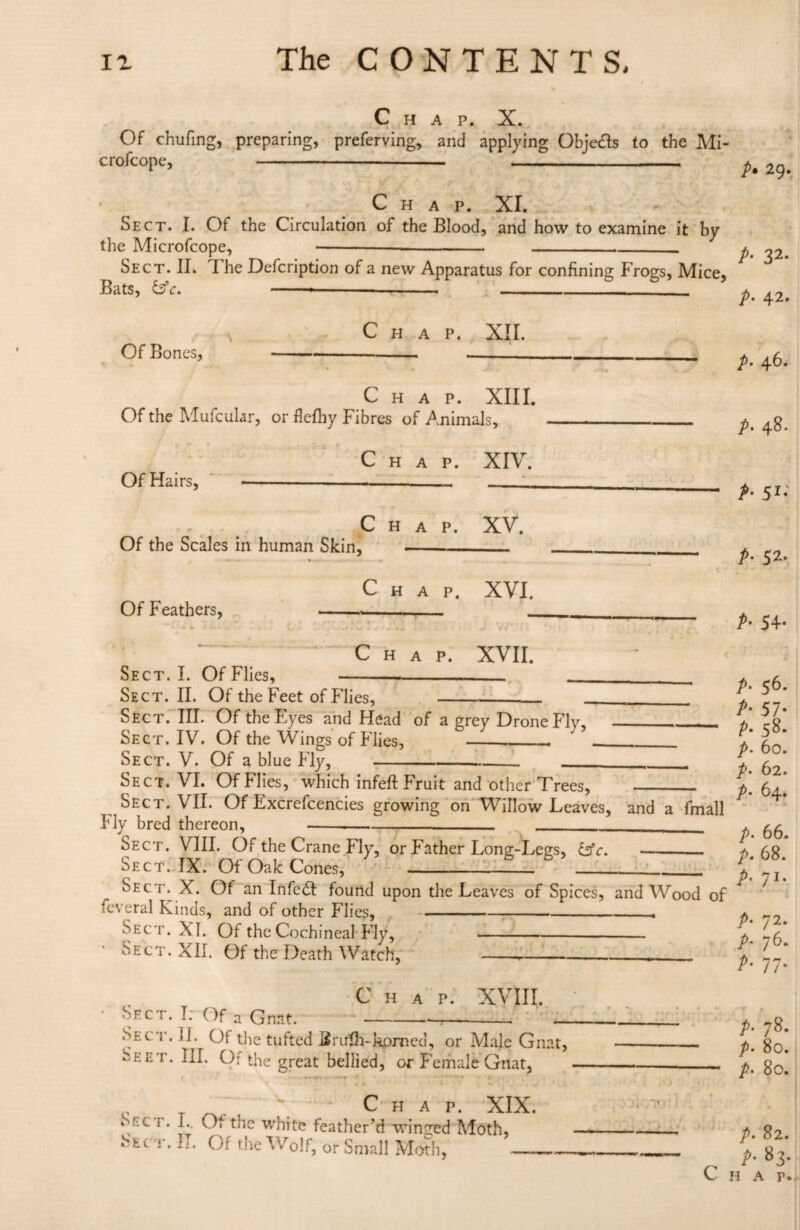 12 The CONTENTS.
CHAP. X.
Of chuſing, preparing, preſerving, and applying Objects to the Mi-
croſcope, p. 29.
CHAP. XI.
SECT. I. Of the Circulation of the Blood, and how to examine it by
the Microſcope, p. 32.
SECT. II. The Deſcription of a new Apparatus for confining Frogs, Mice,
Bats, &c. p. 42.
CHAP. XII.
Of Bones, p. 46.
CHAP. XIII.
Of the Muſcular, or fleſhy Fibres of Animals, p. 48.
CHAP. XIV.
Of Hairs, p. 51.
CHAP. XV.
Of the Scales in human Skin, p. 52.
CHAP. XVI.
Of Feathers, p. 54.
CHAP. XVII.
SECT. I. Of Flies, p. 56.
SECT. II. Of the Feet of Flies, p. 57.
SECT. III. Of the Eyes and Head of a grey Drone Fly, p. 58.
SECT. IV. Of the Wings of Flies, p. 60.
SECT. V. Of a blue Fly, p. 62.
SECT. VI. Of Flies, which infeſt Fruit and other Trees, p. 64.
SECT. VII. Of Excreſcencies growing on Willow Leaves, and a ſmall
Fly bred thereon, p. 66.
SECT. VIII. Of the Crane Fly, or Father Long-Legs, &c. p. 68.
SECT. IX. Of Oak Cones, p. 71.
SECT. X. Of an Inſect found upon the Leaves of Spices, and Wood of
ſeveral Kinds, and of other Flies, p. 72.
SECT. XI. Of the Cochineal Fly, p. 76.
SECT. XII. Of the Death Watch, p. 77.
CHAP. XVIII.
SECT. I. Of a Gnat. p. 78.
SECT. II. Of the tufted Bruſh-horned, or Male Gnat, p. 80.
SEET. III. Of the great bellied, or Female Gnat, p. 80.
CHAP. XIX.
SECT. I. Of the white feather'd winged Moth, p. 82.
SECT. II. Of the Wolf, or Small Moth, p. 83.
CHAP.